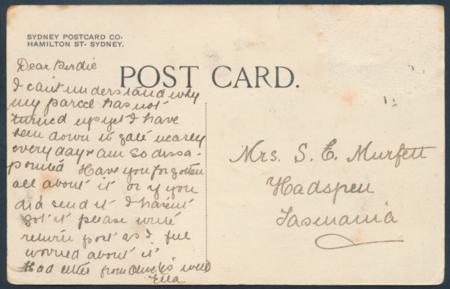 SYDNEY POSTCARD CO.
HAMILTON ST. SYDNEY.
POST CARD.
Dear Birdie
I can't understand why
my parcel has not
turned up yet I have
been down to gate nearly
every day & am so disa-
pointed Have you forgotten
all about it or if you
did send it I havent
got it please write
return post as I feel
worried about it
Had letter from
Ella
Mrs. S. E. Murfett
Hadspen
Tasmania